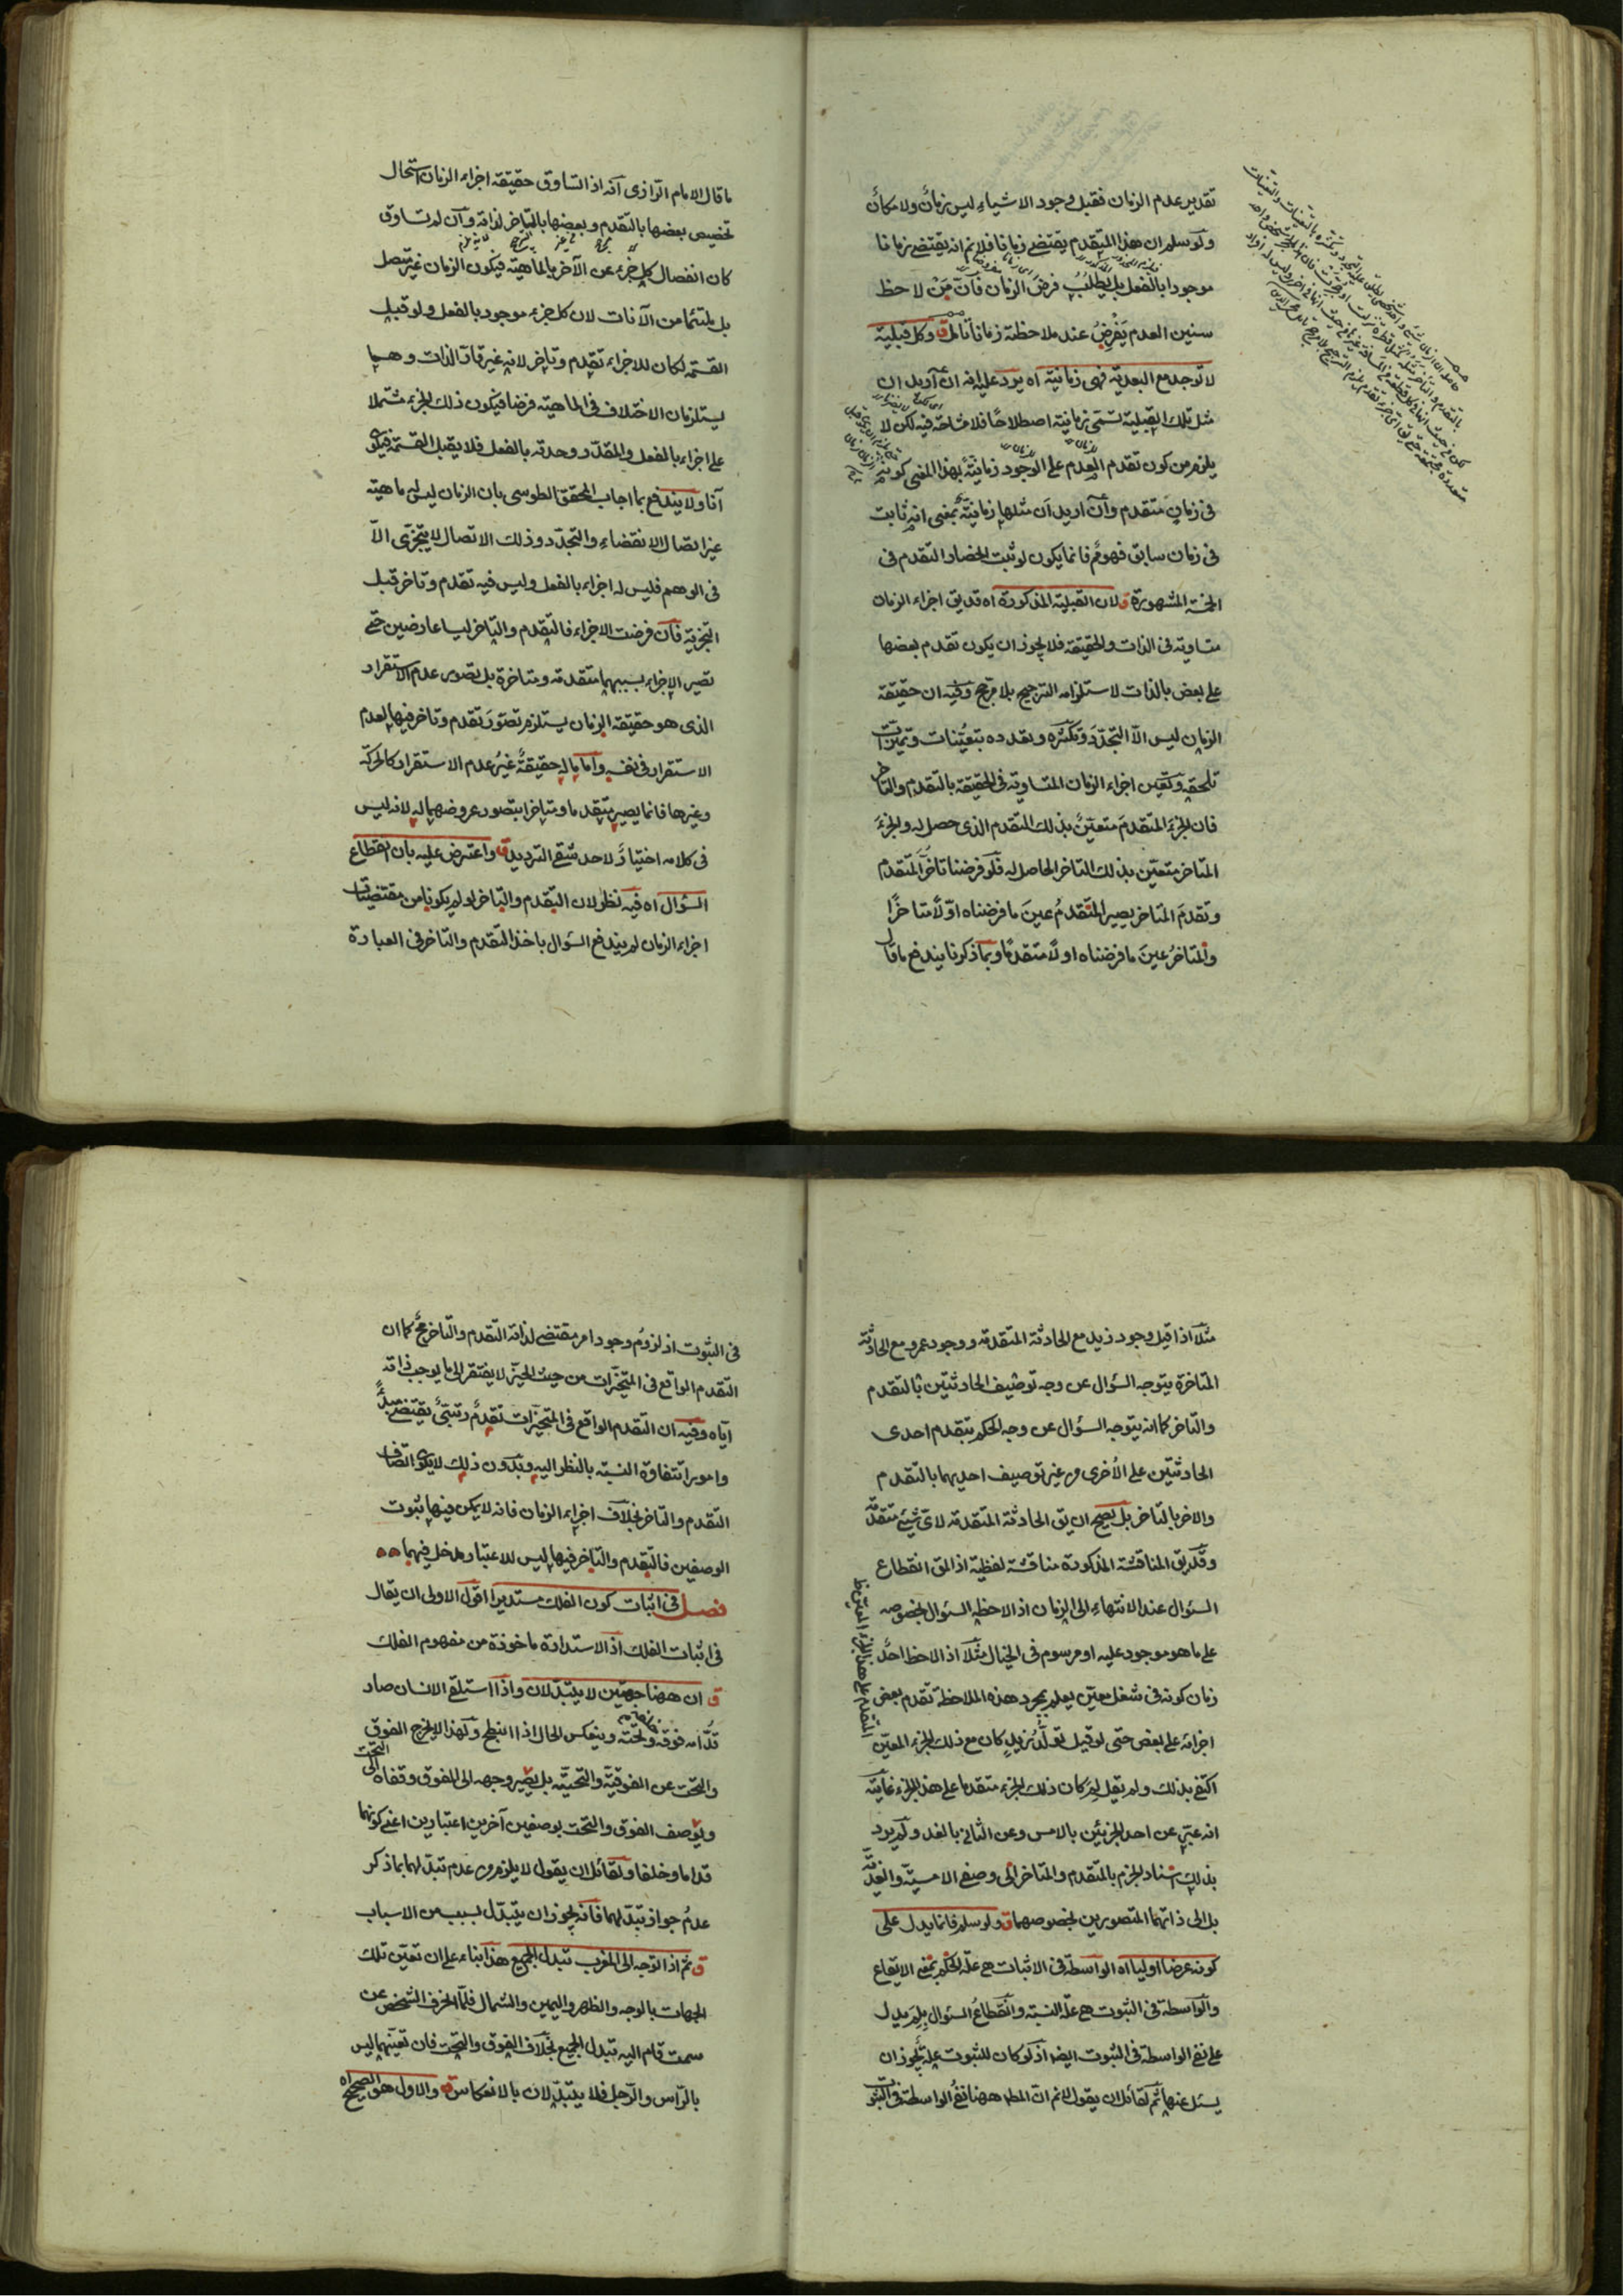 تقدير عدم الزمان فقبل وجود الاشياء ليس زمانٌ ولا مكانٌ
ولو سلم ان هذا المتقدم يقتضى زمانا فلا نم انه يقتضى زمانا
موجودا بالفعل بل يطلب فرض الزمان فان مَنْ لاحظ
سنين العدم يَفْرِضُ عند ملاحظة زمانا ق وكل قبلية
لا توجد مع البعدية فهى زمانية اه يرد عليه انه ان اريد ان
مثل تلك القبلية تسمى زمانية اصطلاحًا فلا مشاحة فيه لكن لا
يلزم من كون تقدم العدم على الوجود زمانيّة بهذا المعنى كونه
فى زمانٍ متقدم وان اريد ان مثلها زمانيّة بمعنى انه ثابت
فى زمان سابق فهو مم فانما يكون لو ثبت انحصار التقدم فى
الخمسة المشهورة ق لان القبلية المذكورة اه قد يق اجزاء الزمان
متساوية فى الذات والحقيقة فلا يجوز ان يكون تقدم بعضها
على بعض بالذات لاستلزامه الترجيح بلا مرجح وفيه ان حقيقة
الزمان ليس الا التجدّدَ وتكثّره وتعدده بتعيّنات وتميّزات
تلحقه وتعيّن اجزاء الزمان المتساوية فى الحقيقة بالتقدم والتاخر
فان الجزءَ المتقدمَ متعيّنٌ بذلك التقدم الذى حصل له والجزءَ
المتاخر متعين بذلك التاخر الحاصل له فلو فرضنا تاخر المتقدم
وتقدمَ المتاخر يصير المتقدمُ عينَ ما فرضناه اوّلًا متاخرًا
والمتاخرُ عينَ ما فرضناه اولًا متقدمًا وبما ذكرنا يندفع ما قال
ما قال الامام الرازى انه اذا تساوق حقيقة اجزاء الزمان استحال
تخصيص بعضها بالتقدم وبعضها بالتاخر لذاته وان لم تساوق
كان انفصال كل جزء عن الآخر بالماهية فيكون الزمان غير متصل
بل ملتئما من الآنات لان كل جزء موجود بالفعل ولو قبل
القسمة لكان للاجزاء تقدم وتاخر لانه غير قار الذات وهما
يستلزمان الاختلاف فى الماهية فرضا فيكون ذلك الجزء مشتملا
على اجزاء بالفعل والمقدّر وحدته بالفعل فلا يقبل القسمة فيكون
آنا ولا يندفع بما اجاب المحقق الطوسى بان الزمان ليس له ماهية
غير اتصال الانقضاء والتجدّد وذلك الاتصال لا يتجزى الّا
فى الوهم فليس له اجزاء بالفعل وليس فيه تقدم وتاخر قبل
التجزية فان فرضت الاجزاء فالتقدم والتاخر ليسا عارضين حتى
تصير الاجزاء بسببهما متقدمة ومتاخرة بل تصور عدم الاستقرار
الذى هو حقيقة الزمان يستلزم تصوّرَ تقدم وتاخر فيها لعدم
الاستقرار فى نفسه واما ما له حقيقةٌ غيرُ عدم الاستقرار كالحركة
وغيرها فانما يصير متقدما ومتاخرا بتصور عروضهما له لانه ليس
فى كلامه اختيارٌ لاحد شقى الترديد ق واعترض عليه بان انقطاع
السؤال اه فيه نظر لان التقدم والتاخر لو لم يكونا من مقتضيات
اجزاء الزمان لم يندفع السؤال باخذ التقدم والتاخر فى العبارة
مثلا اذا قيل وجود زيد مع الحادثة المتقدمة ووجود عمرو مع الحادثة
المتاخرة يتوجه السؤال عن وجه توصيف الحادثتين بالتقدم
والتاخر كما انه يتوجه السؤال عن وجه الحكم بتقدم احدى
الحادثتين على الأخرى من غير توصيف احديهما بالتقدم
والاخر بالتاخر بل يصح ان يق الحادثة المتقدمة لاى شئ متقدمة
وقد يق المناقشة المذكورة مناقشة لفظية اذ المق انقطاع
السئوال عند الانتهاء الى الزمان اذ الاحظه السئوال بخصوصه
على ما هو موجود عليه او مرسوم فى الخيال مثلا اذا لاحظ احدٌ
زمان كونه فى شغل معيّن يعلم بمجرد هذه الملاحظة تقدم بعض
اجزائه على بعض حتى لو قيل تولّدُ زيدٍ كان مع ذلك الجزء المعيّن
اكتفى بذلك ولم يقل لِمَ كان ذلك الجزء متقدما على هذا الجزء غايته
انه عبّر عن احد الجزئين بالامس وعن الثانى بالغد ولم يرد
بذلك اسناد الجزم بالتقدم والتاخر الى وصفى الامسية والغدية
بل الى ذاتهما المتصورين بخصوصهما ق ولو سلم فانما يدل على
كونه عرضا اوليا اه الواسطة فى الاثبات هى علة الحكم بمعنى الايقاع
والواسطة فى الثبوت هى علّة النسبة وانقطاعُ السئوال بِلِمَ يدل
على نفى الواسطة فى الثبوت ايضا اذ لو كان للثبوت علة يجوز ان
يسئل عنها ثم لقائل ان يقول لا نم ان المط ههنا نفىُ الواسطة فى الثبوت
التقدم على هذا الجزء المعيّن
فى الثبوت اذ لزومُ وجود امر مقتضى لذاته التقدم والتاخر مم كما ان
التقدم الواقع فى المتحيّزات من حيث الحيّز لا يفتقر الى ما يوجب ذاته
اياه وفيه ان التقدم الواقع فى المتحيزات تقدمٌ رتبتىٌ يقتضى مبدأً
وامورا متفاوتة النسبة بالنظر اليه وبدون ذلك لا يكون اتصاف
التقدم والتاخر بخلاف اجزاء الزمان فانه لا يمكن فيها ثبوت
الوصفين فالتقدم والتاخر فيها ليس للاعتبار مدخل فيهما
فصل فى اثبات كون الفلك مستديرا اقول الاولى ان يقال
فى اثبات الفلك اذ الاستدارة ماخوذة من مفهوم الفلك
ق ان ههنا جهتين لا يتبدلان واذا استلقى الانسان صار
قدّامه فوقه وتحته وينعكس الحال اذا انبطح ولهذا لا يخرج الفوق
والتحت عن الفوقية والتحتية بل يصير وجهه الى الفوق وقفاه الى التحت
ويوصف الفوق والتحت بوصفين آخرين اعتبارين اعنى كونهما
قداما وخلفا ولقائل ان يقول لا يلزم من عدم تبدلهما بما ذكر
عدمُ جواز تبدّلهما فانه يجوز ان يتبدّل بسبب من الاسباب
ق ثم اذا توجه الى المغرب تبدل الجميع هذا بناء على ان تعيّن تلك
الجهات بالوجه والظهر واليمين والشمال فلمّا انحرف الشخص عن
سمت قام اليه تبدل الجميع بخلاف الفوق والتحت فان تعيّنهما ليس
بالرّاس والرّجل فلا يتبدّلان بالانعكاس ق والاول هو الصحيح اه